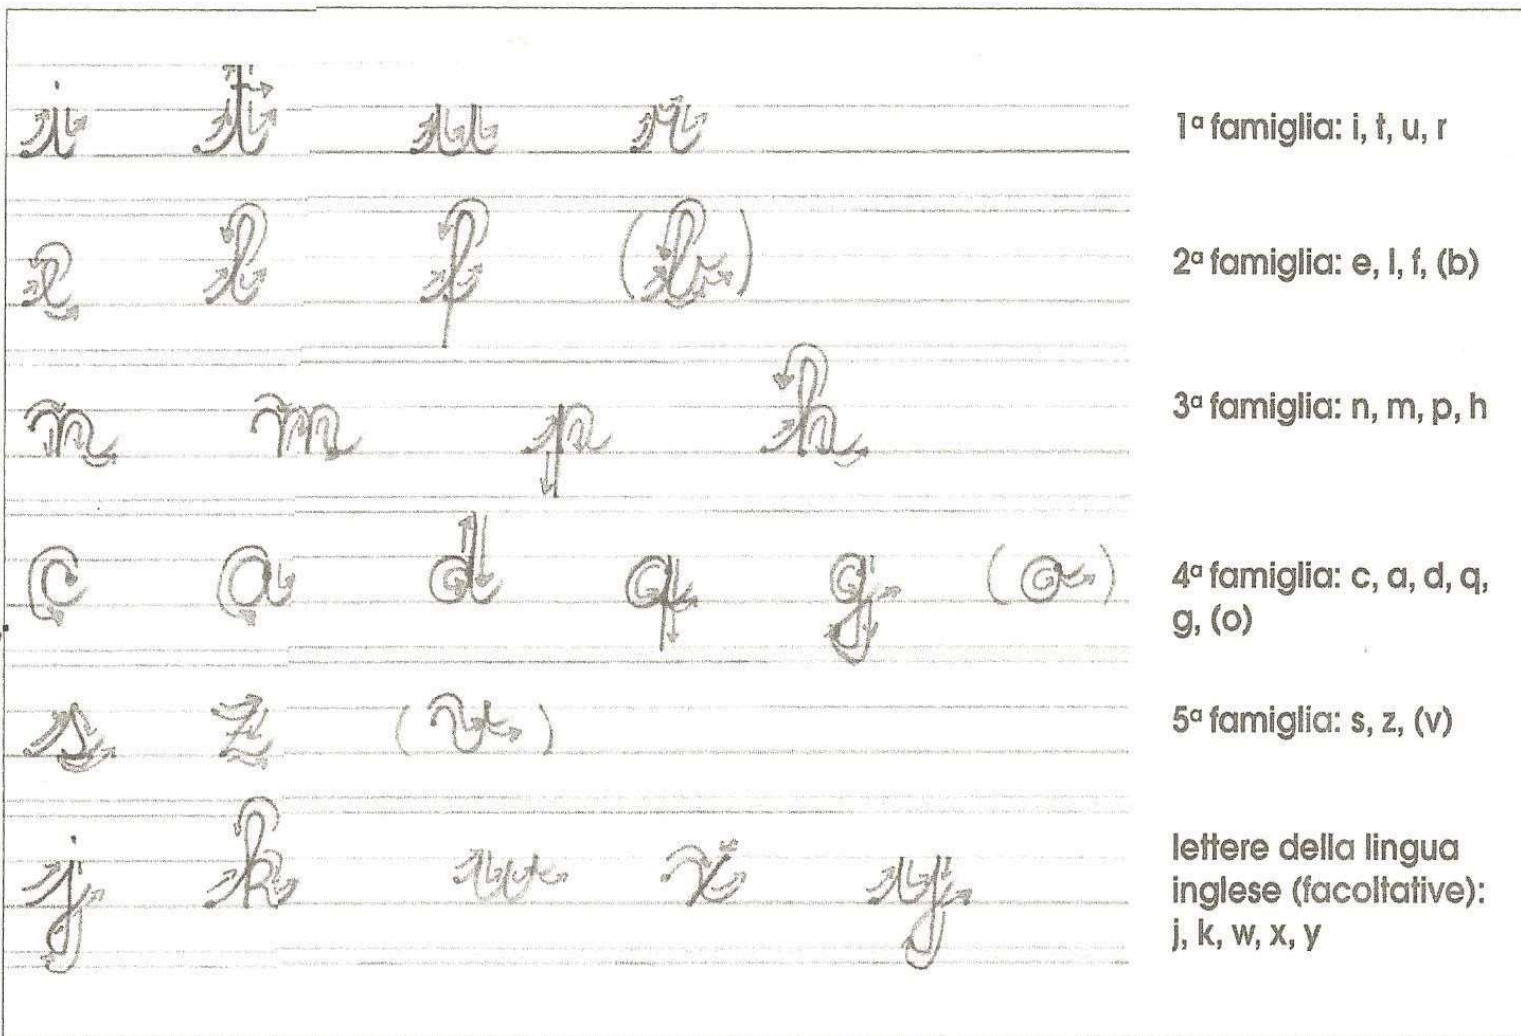 i t u r
1ª famiglia: i, t, u, r
e l f (b)
2ª famiglia: e, l, f, (b)
n m p h
3ª famiglia: n, m, p, h
c a d q g (o)
4ª famiglia: c, a, d, q,
g, (o)
s z (v)
5ª famiglia: s, z, (v)
j k w x y
lettere della lingua
inglese (facoltative):
j, k, w, x, y